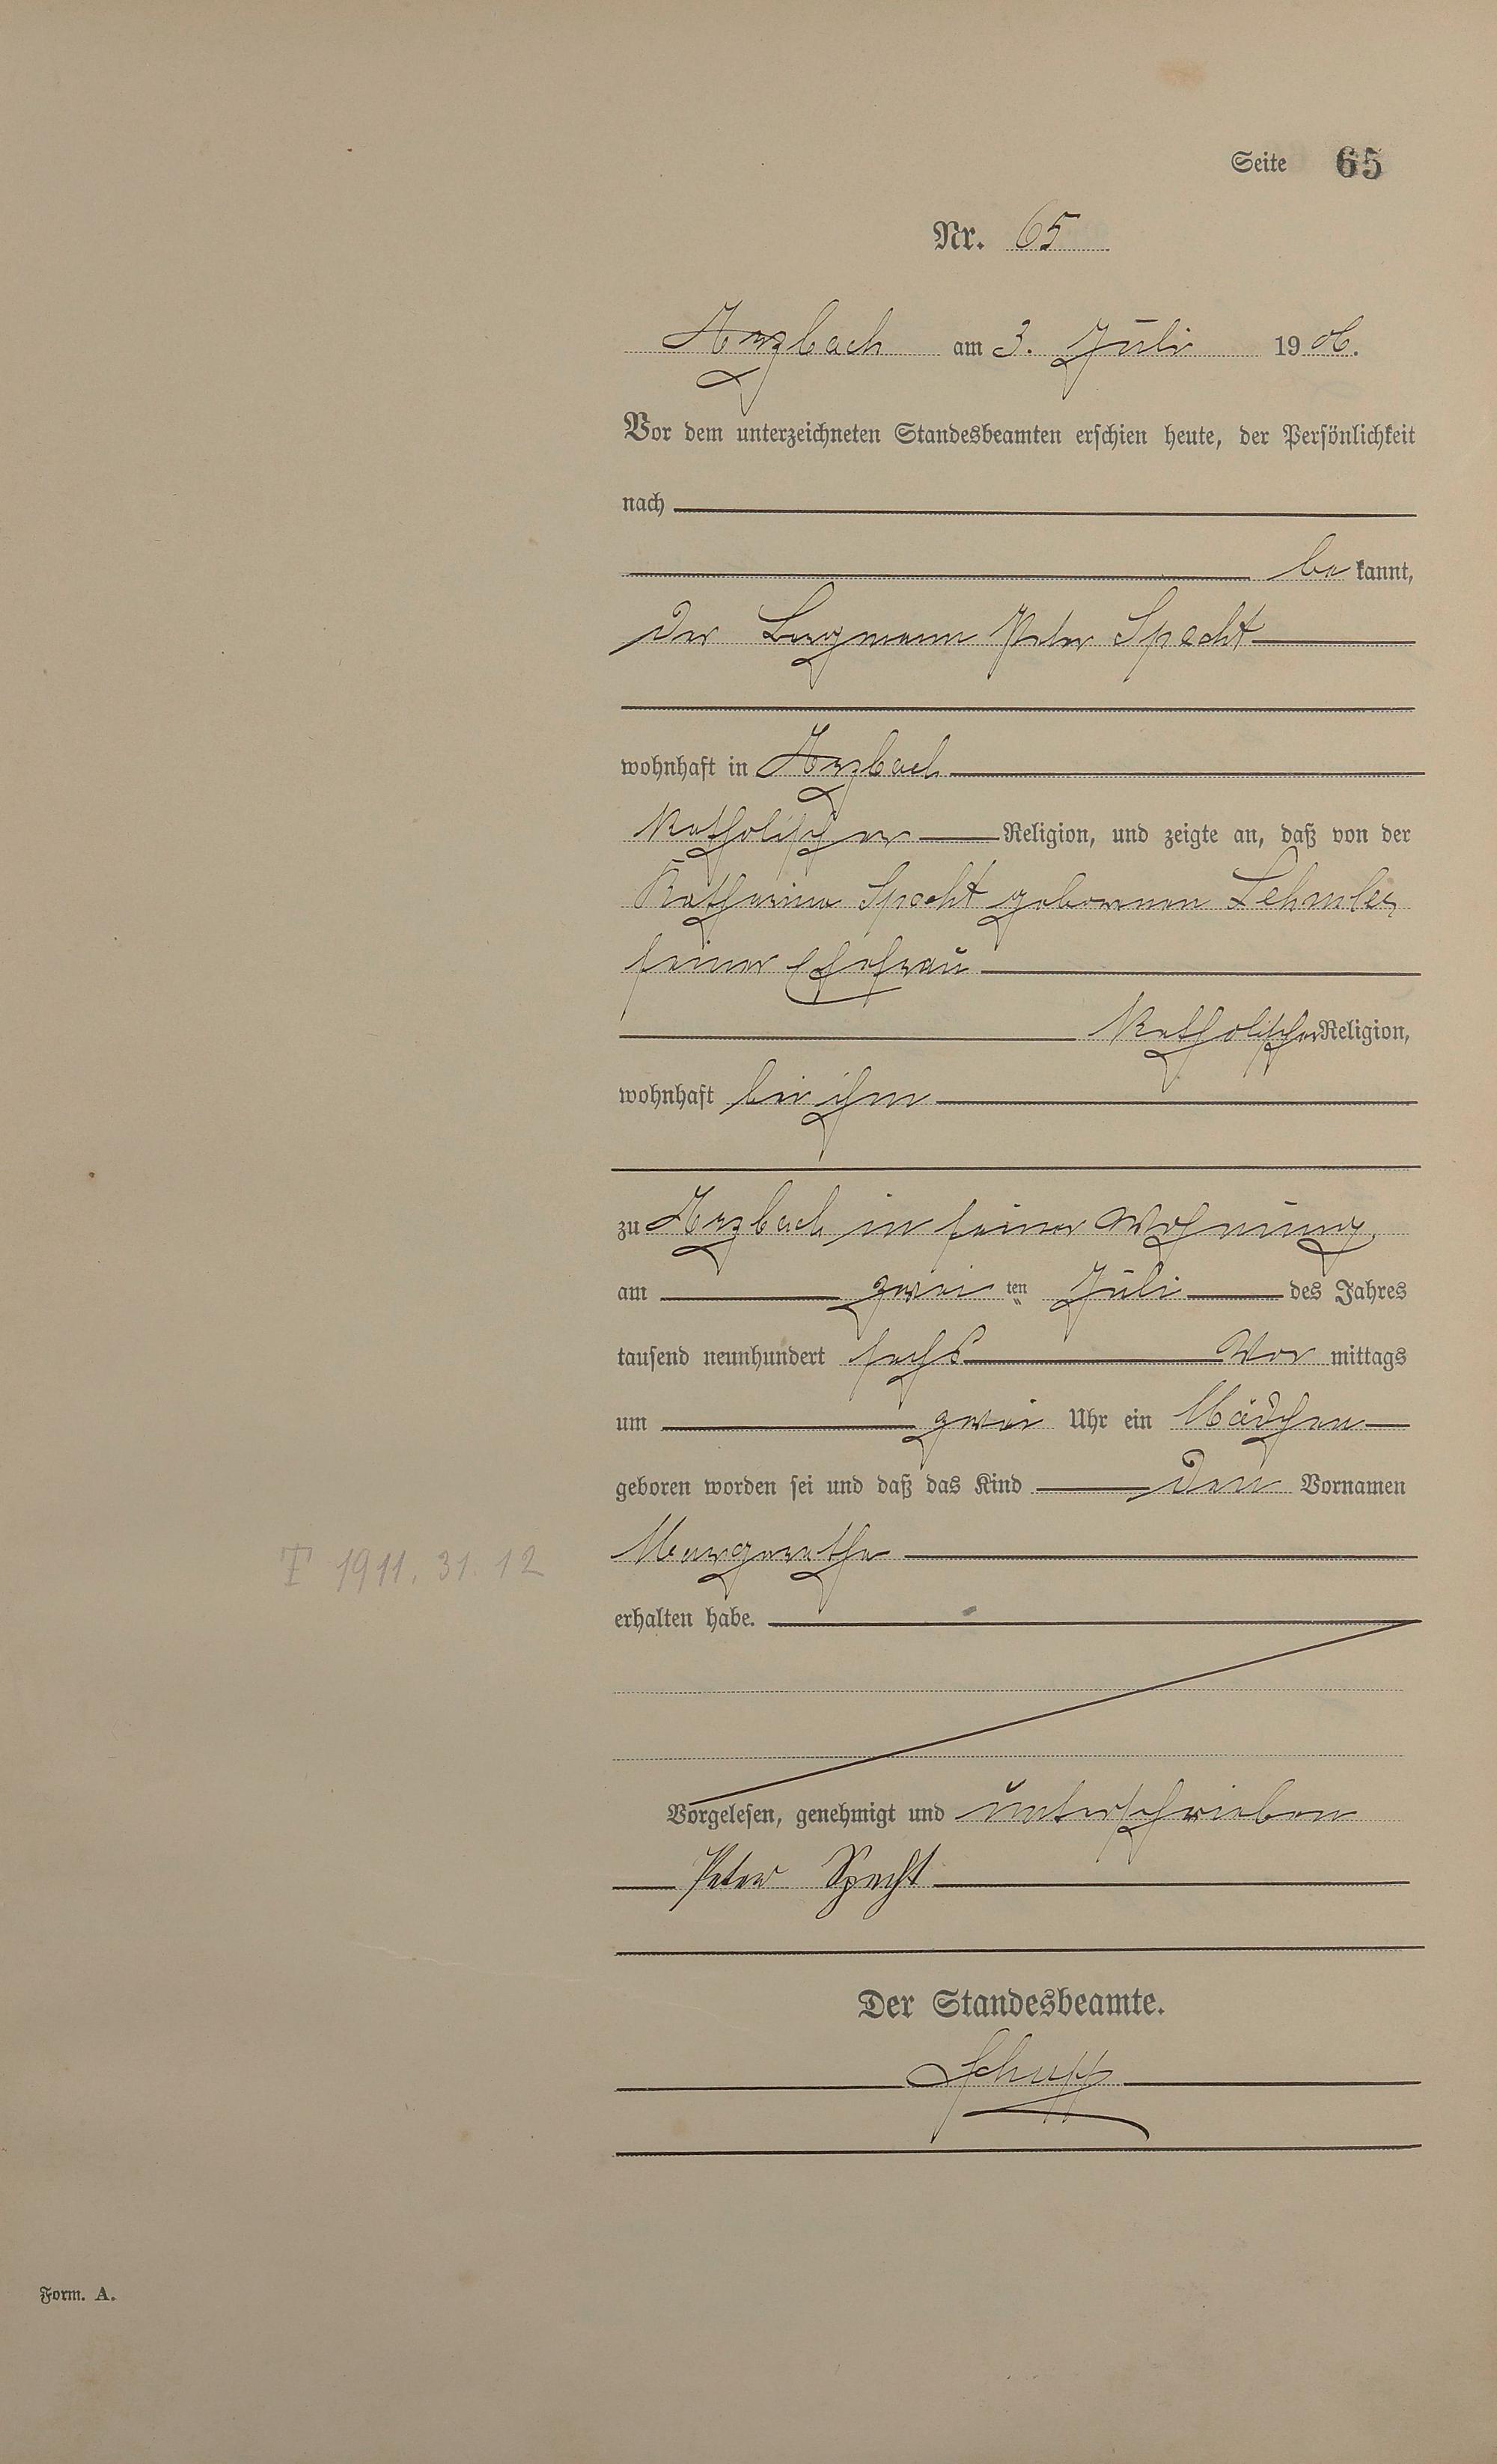 Seite 65
Nr. 65
Arzbach am 3. Juli 1906.
Vor dem unterzeichneten Standesbeamten erschien heute, der Persönlichkeit
nach
be kannt,
der Bergmann Peter Specht
wohnhaft in Arzbach
katholischer Religion, und zeigte an, daß von der
Katharina Specht geborenen Lehmler
seiner Ehefrau
katholischer Religion,
wohnhaft bei ihm
zu Arzbach in seiner Wohnung,
am zwei ten Juli des Jahres
tausend neunhundert sechs Vor mittags
um zwei Uhr ein Mädchen
geboren worden sei und daß das Kind den Vornamen
Margaretha
T 1911. 31. 12
erhalten habe.
Vorgelesen, genehmigt und unterschrieben
Peter Specht
Der Standesbeamte.
Schupp
Form. A.